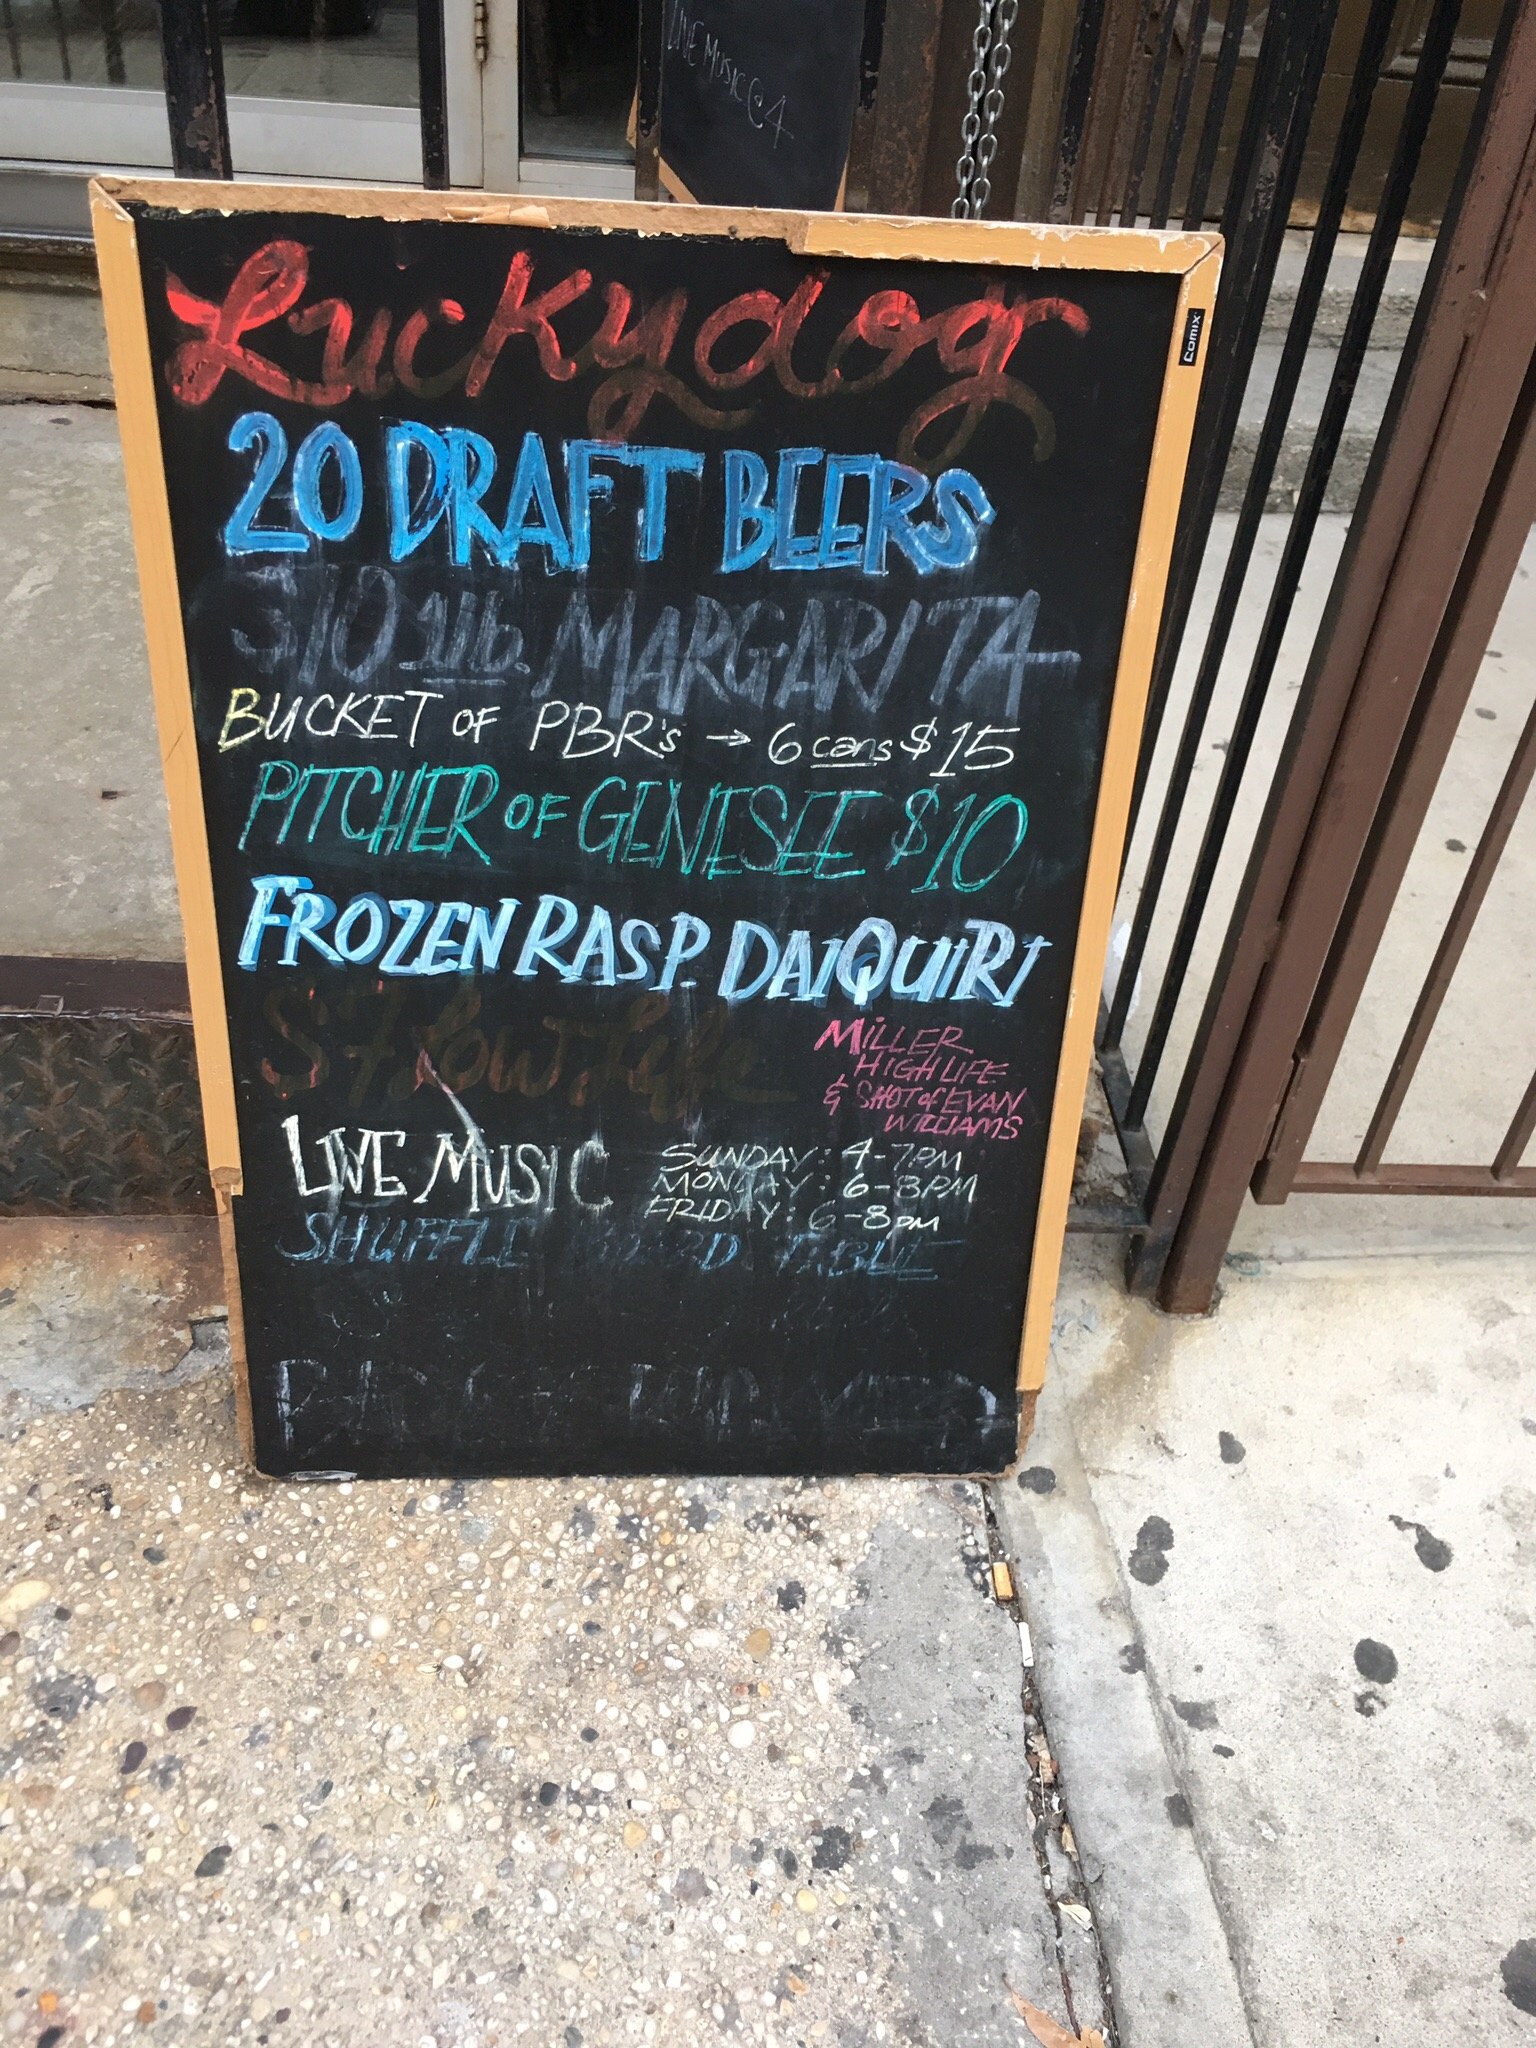 LIVE MUSIC @ 4
Luckydog
Comix
20 DRAFT BEERS
$10 11b. MARGARITA
BUCKET OF PBR's → 6 cans $15
PITCHER OF GENESEE $10
FROZEN RASP. DAIQUIRI
$7
MILLER
HIGH LIFE
& SHOT of EVAN
WILLIAMS
LIVE MUSIC
SUNDAY: 4-7PM
MONDAY: 6-8PM
FRIDAY: 6-8PM
SHUFFLE BOARD TABLE